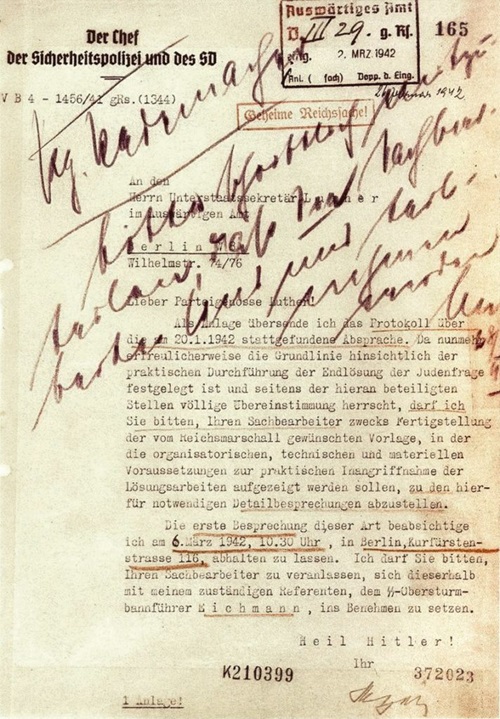 Der Chef
der Sicherheitspolizei und des SD
V B 4 - 1456/41 gRs.(1344)
Auswärtiges Amt
D. III 29. g. Rs.
eing. 2. MRZ 1942
Anl. ( fach) Dopp. d. Eing.
165
Februar 1942
Geheime Reichssache!
pg. Rademacher
An den
Herrn Unterstaatssekretär L u t h e r
im Auswärtigen Amt
B e r l i n W 8
Wilhelmstr. 74/76
Lieber Parteigenosse Luther!
Als Anlage übersende ich das Protokoll über
die am 20.1.1942 stattgefundene Absprache. Da nunmehr
erfreulicherweise die Grundlinie hinsichtlich der
praktischen Durchführung der Endlösung der Judenfrage
festgelegt ist und seitens der hieran beteiligten
Stellen völlige Übereinstimmung herrscht, darf ich
Sie bitten, Ihren Sachbearbeiter zwecks Fertigstellung
der vom Reichsmarschall gewünschten Vorlage, in der
die organisatorischen, technischen und materiellen
Voraussetzungen zur praktischen Inangriffnahme der
Lösungsarbeiten aufgezeigt werden sollen, zu den hier-
für notwendigen Detailbesprechungen abzustellen.
Die erste Besprechung dieser Art beabsichtige
ich am 6.März 1942, 10.30 Uhr , in Berlin,Kurfürsten-
strasse 116, abhalten zu lassen. Ich darf Sie bitten,
Ihren Sachbearbeiter zu veranlassen, sich dieserhalb
mit meinem zuständigen Referenten, dem ᛋᛋ-Obersturm-
bannführer E i c h m a n n , ins Benehmen zu setzen.
H e i l H i t l e r !
Ihr
K210399
372023
1 Anlage!